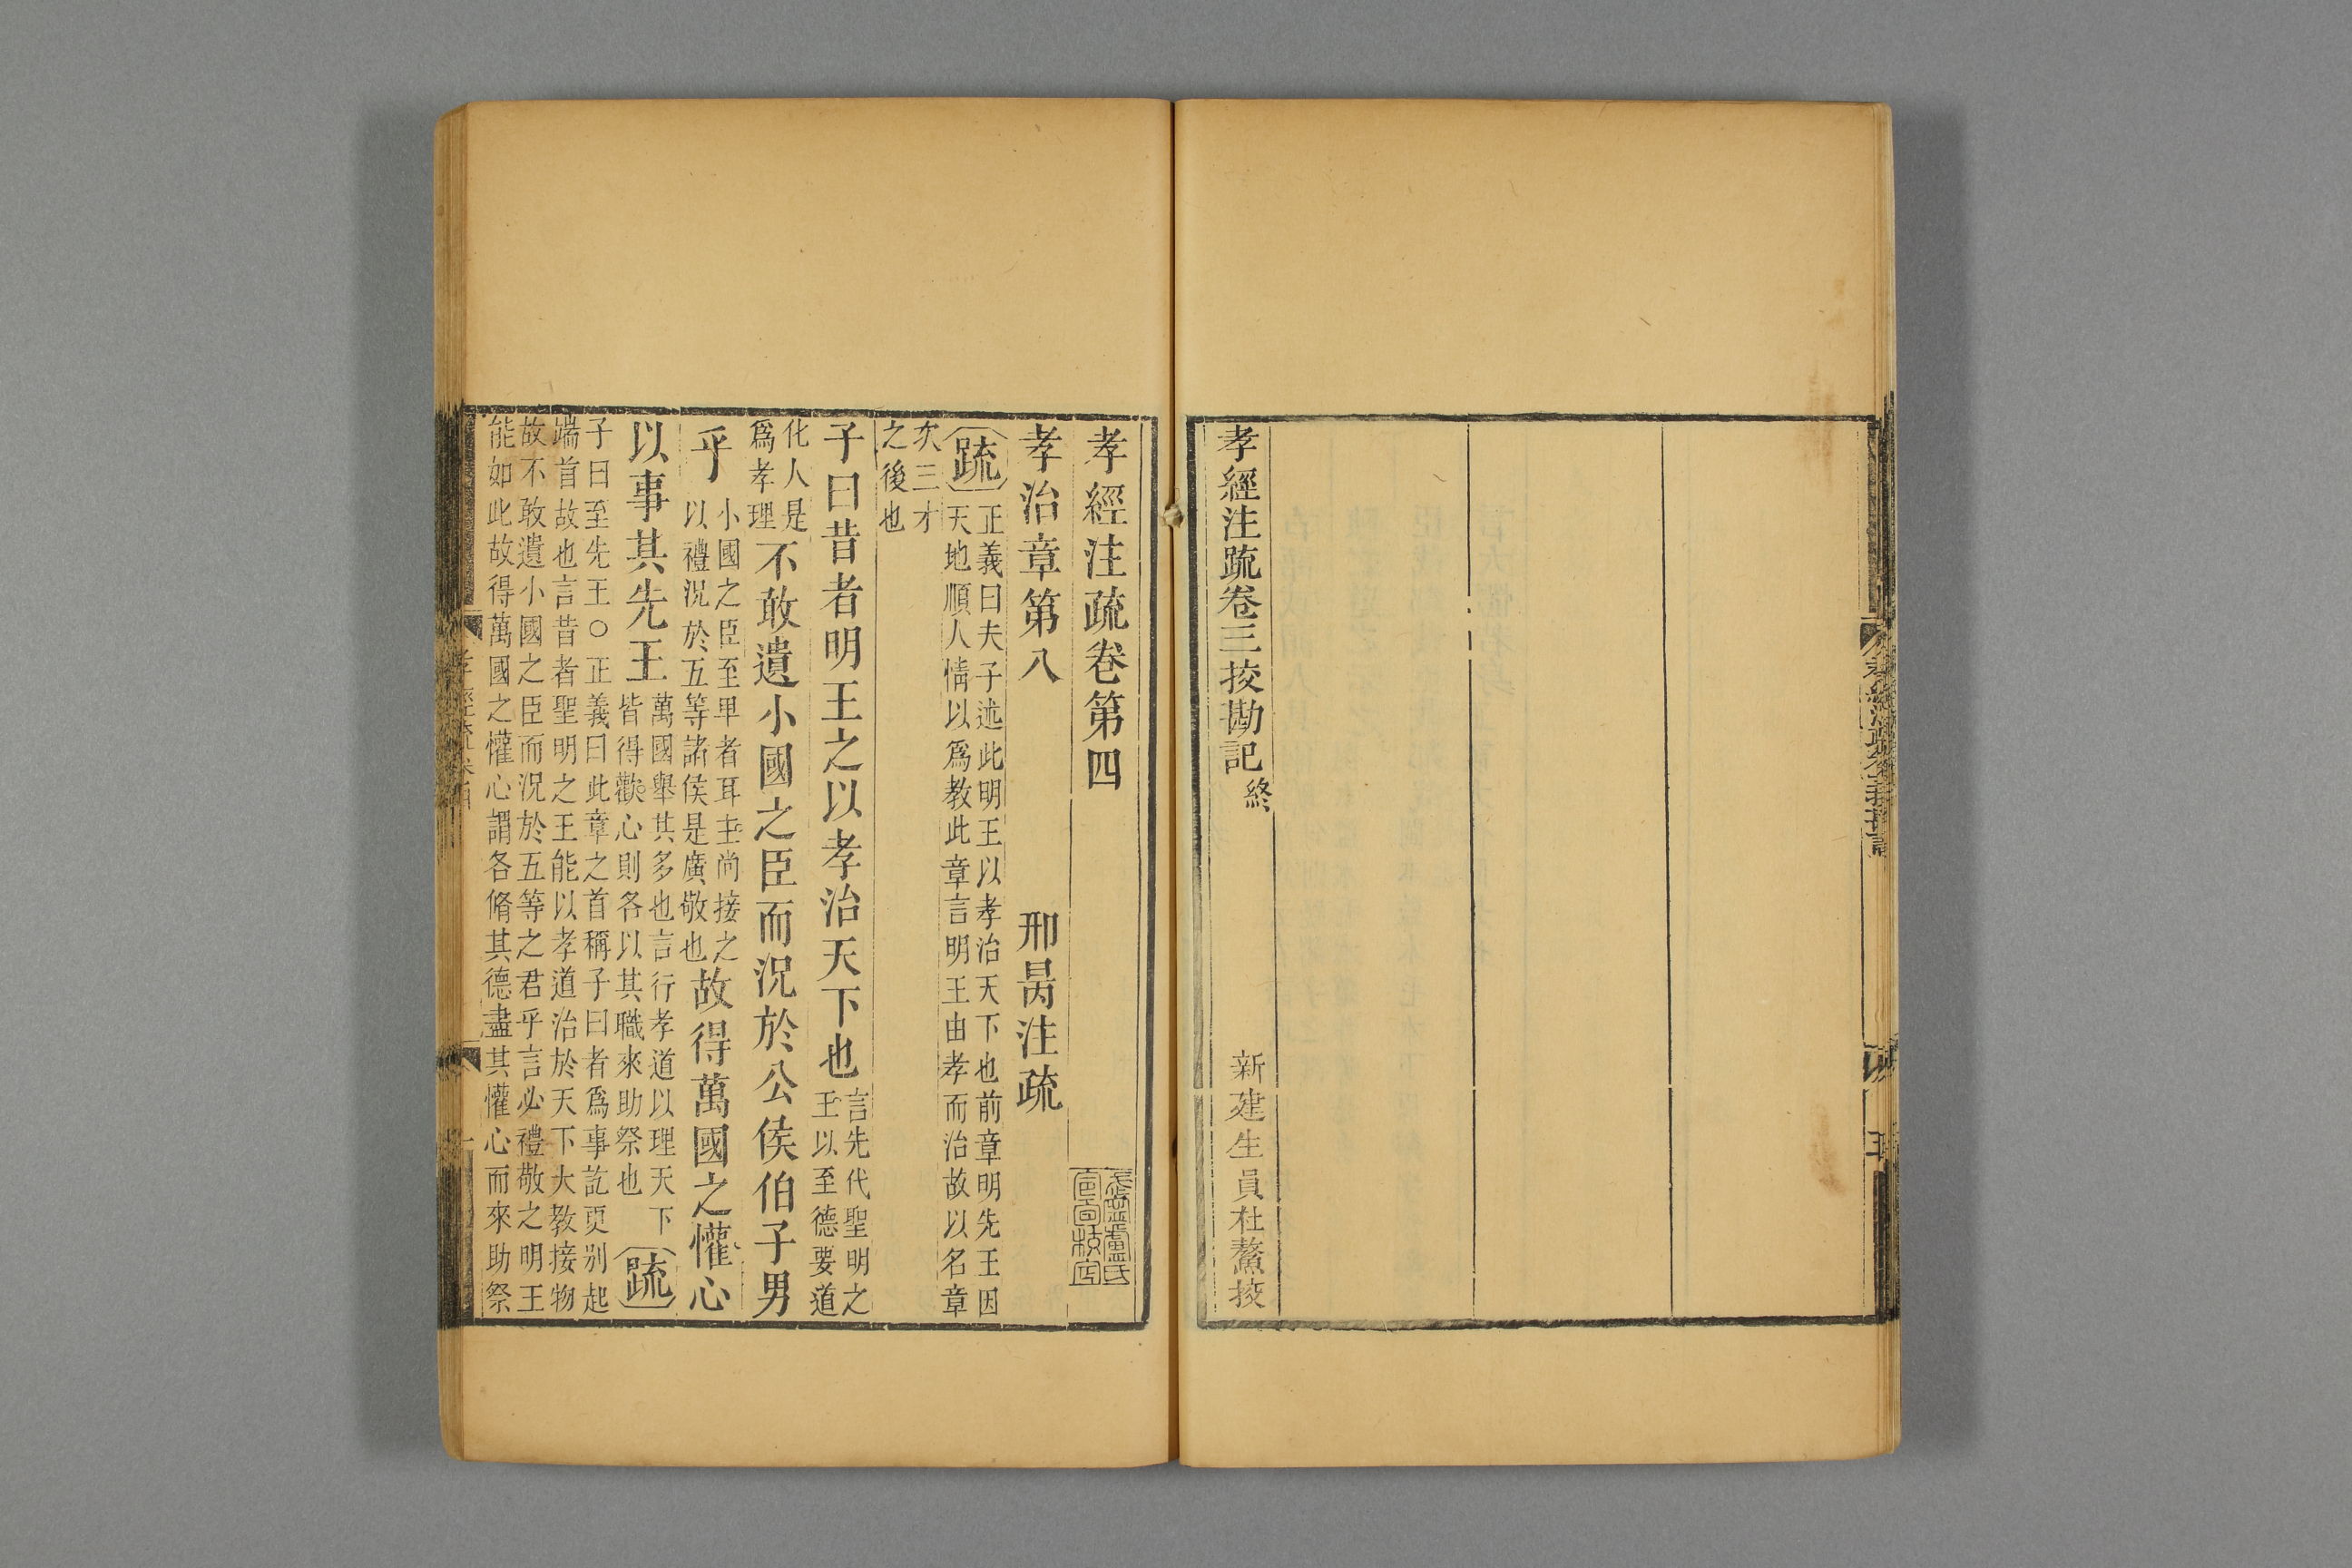 孝經注疏卷三挍勘記終
新建生員杜鰲挍
孝經注疏卷第四
孝治章第八
邢昺注疏
疏
正義曰夫子述此明王以孝治天下也前章明先王因
天地順人情以爲教此章言明王由孝而治故以名章
次三才
之後也
子曰昔者明王之以孝治天下也
言先代聖明之
王以至德要道
化人是
爲孝理
不敢遺小國之臣而況於公侯伯子男
乎
小國之臣至卑者耳主尚接之
以禮況於五等諸侯是廣敬也
故得萬國之懽心
以事其先王
萬國舉其多也言行孝道以理天下
皆得歡心則各以其職來助祭也
疏
子曰至先王○正義曰此章之首稱子曰者爲事訖更别起
端首故也言昔者聖明之王能以孝道治於天下大教接物
故不敢遺小國之臣而況於五等之君乎言必禮敬之明王
能如此故得萬國之懽心謂各脩其德盡其懽心而來助祭